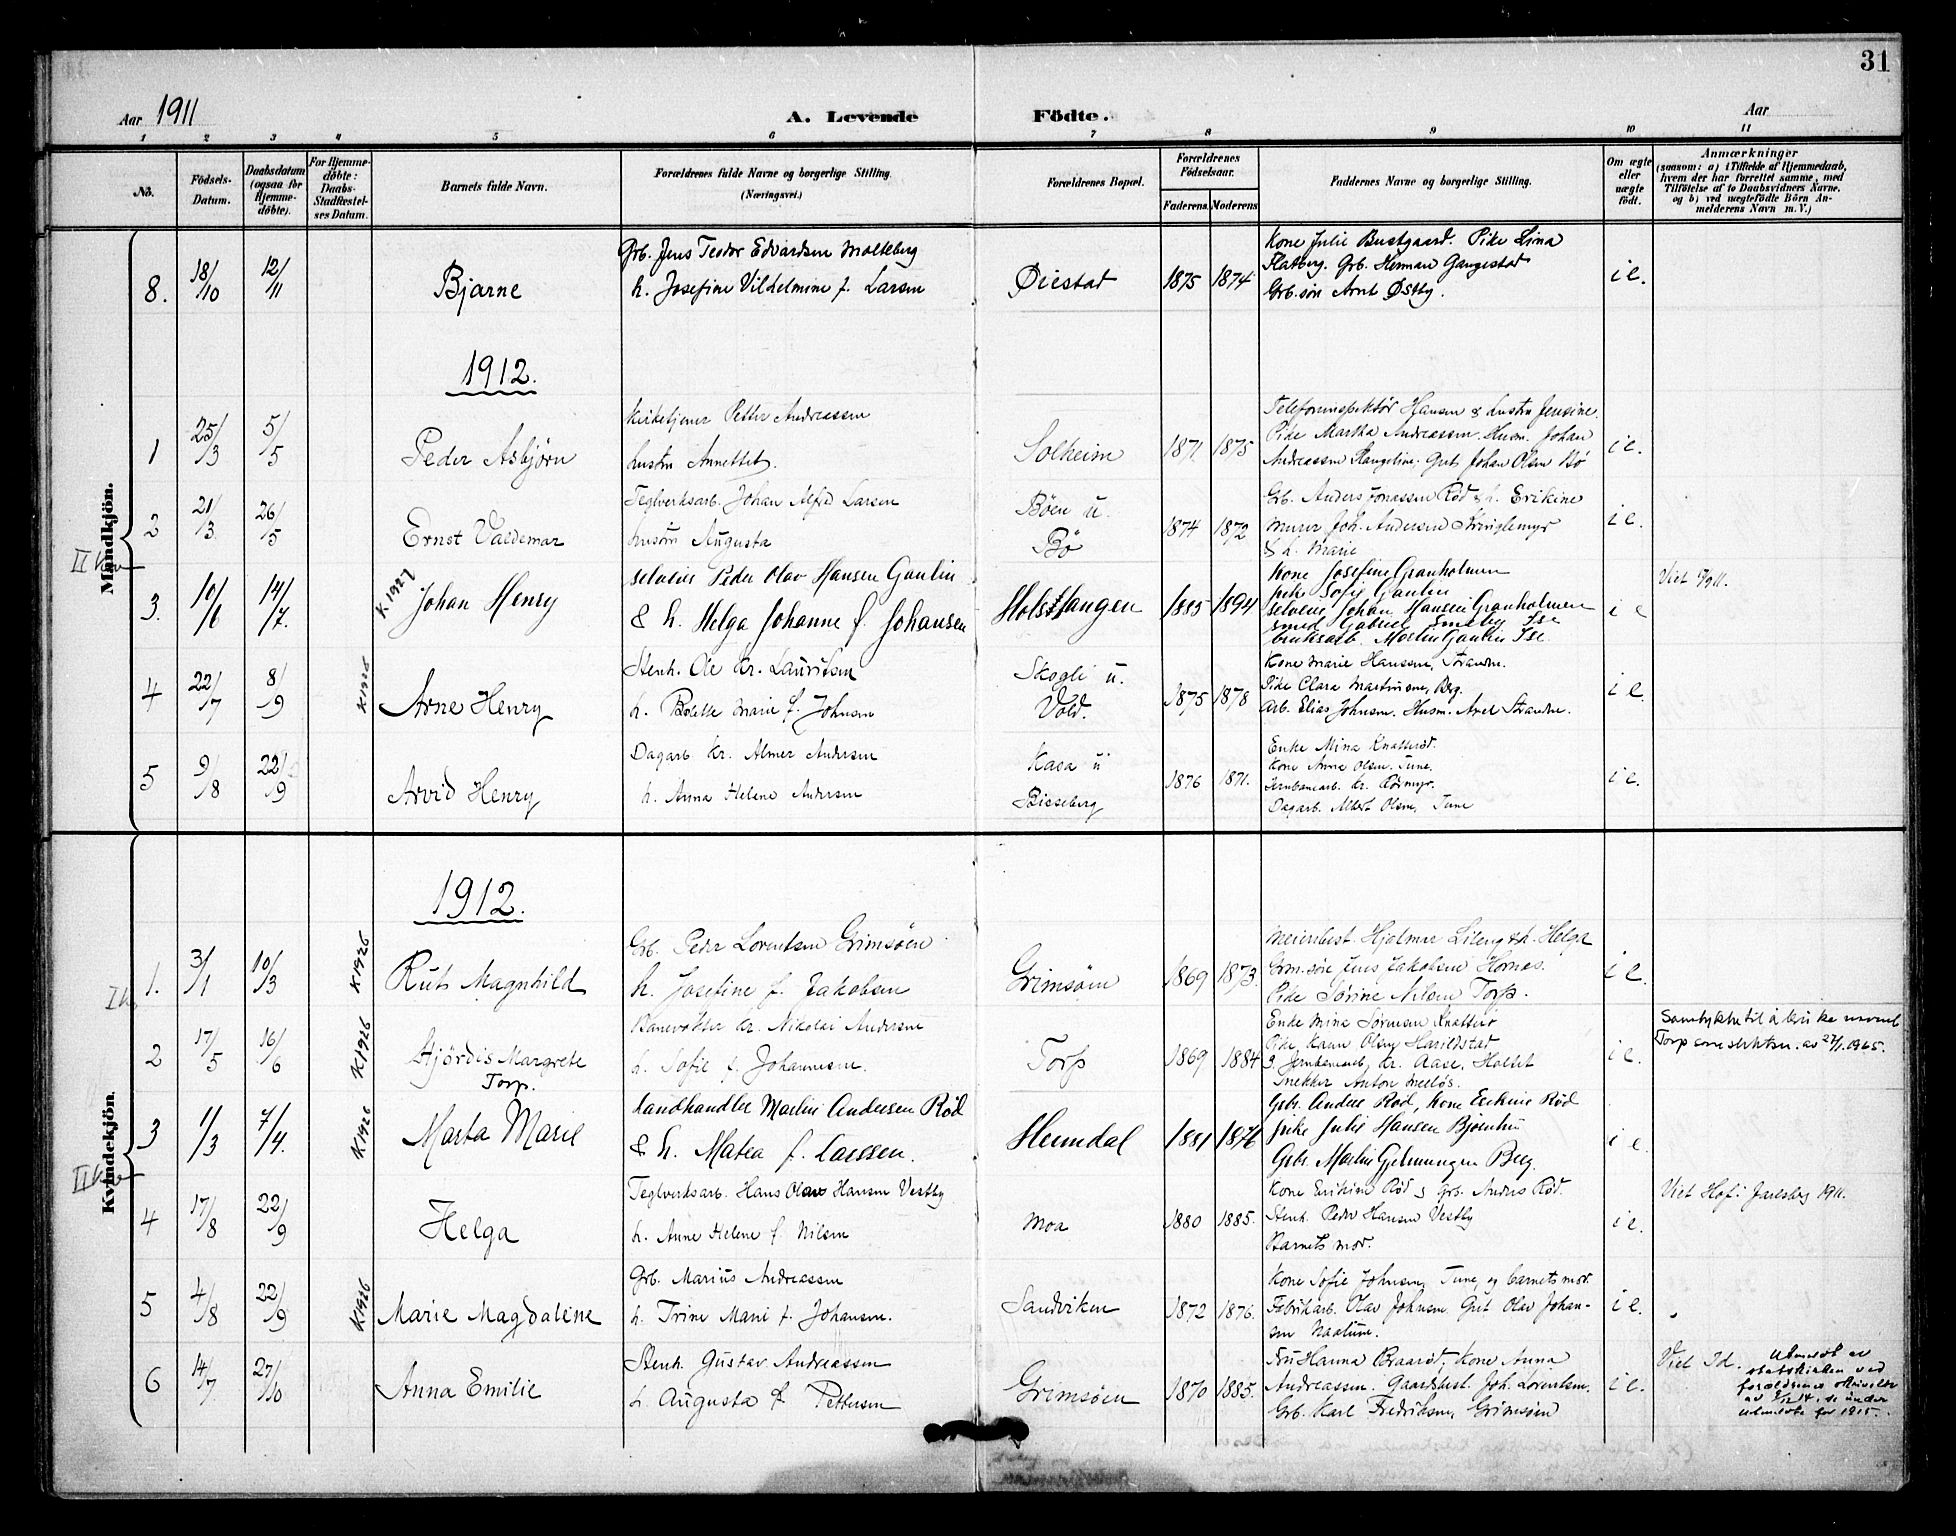 31
Aar 1911 A. Levende Födte. Aar
1 2 3 4 5 6 7 8 9 10 11
No.
Födsels-Datum.
Daabsdatum (ogsaa for Hjemme-döbte).
For Hjemme-döbte: Daabs-Stadfæstel-ses Datum.
Barnets fulde Navn.
Forældrenes fulde Navne og borgerlige Stilling. (Næringsvei.)
Forældrenes Bopæl.
Forældrenes Födselsaar.
Faderens. Moderens.
Faddernes Navne og borgerlige Stilling.
Om ægte eller uægte födt.
Anmærkninger
(saasom: a) i Tilfælde af Hjemmedaab,
hvem der har forrettet samme, med
Tilföielse af to Daabsvidners Navne.
og b) ved uægtefödte Börn An-
melderens Navn m. V.)
Mandkjön.
8. 18/10 12/11 Bjarne
Grb. Jens Teodor Edvardsen Molteberg
h. Josefine Vilhelmine f. Larsen
Øiestad 1875 1874
Kone Julie Bustgaard. Pike Lina
Flatberg. Grb. Herman Gangestad
Grb.søn Arnt Østby.
i e.
1912.
1 25/3 5/5 Peder Asbjørn
Kirketjener Petter Andreassen
hustru Annette
Solheim 1871 1875
Telefoninspektør Hansen & hustru Jensine.
Pike Martha Andreassen. Husm. Johan
Andreassen
Johan Olsen Bø
i e.
2 21/3 26/5 Ernst Valdemar
Teglverksarb. Johan Alfred Larsen
Augusta
Bøen u.
Bø
1874 1872
Grb. Anders Jonassen Rød & h. Erikine
Murer Joh. Andersen Kringlemyr
& h. Marie
i e.
3. 10/6 14/7. K 1927 Johan Henry
selveier Peder Olav Hansen Gaulin
& h. Helga Johanne f. Johansen
1885 1894
Kone Josefine Granholmen
pike Sofij Gaulin
selveier Johan Hansen Granholmen
smed Gabriel Smeby Ise
bruksarb. Martin Gaulin Ise
i e
4 22/7 8/9 K1926 Arne Henry
Stenh. Ole Kr. Lauritsen
h. Bolette Marie f. Johnsen
Skogli u.
Vold.
1875 1878
Kone Marie Hansen, Stranden.
Pike Clara Martinsen, Berg.
Arb. Elias Johnsen. Husm. Axel Stranden.
i e.
5 9/8 22/9 Arvid Henry
Dagarb. Kr. Almer Andersen
h. Anna Helene Andersen
Kasa u
Bisseberg
1876 1871.
Enke Mina Knatterød.
Kone Anna Olsen. Tune.
Jernbanearb. Kr. Rørmyr.
Dagarb. Albert Olsen, Tune
i e.
Kvindekjön.
1912.
1. 3/1 10/3 K1926 Rut Magnhild
Grb. Peder Lorentsen Grimsøen
h. Josefine f. Jakobsen
Grimsøen 1869 1873.
Meieribest. Hjalmar Lileng & h. Helga
Jens Jakobsen Hornes.
Pike Sørine Nilsen Torp.
i e.
2 17/5 16/6 K1926 Hjördis Margrete
Torp.
Banevokter Kr. Nikolai Andersen
h. Sofie f. Johannesen.
Torp 1869 1884
Enke Mina Sørensen Knatterød
Pike Karen Olsen, Harildstad
Jernbanearb. Kr. Aase, Holset
Snekker Anton Melløs.
i e.
Samtykke til å bruke navnet
Torp som slektsn. av 27/1.1965.
3 1/3 7/4. K1926 Marta Marie
Landhandler Martin Andersen Rød
& h. Matea f. Larssen.
Hemdal 1881 1876
Gbr. Anders Rød, kone Erikine Rød
pike Julie Hansen
Gbr. Martin Gjelmungen Berg.
i e
4 17/8 22/9 Helga
Teglverksarb. Hans Olav Hansen Vestby
h. Anne Helene f. Nilsen
Moa 1880 1885.
Kone Erikine Rød & Grb. Anders Rød.
Stenh. Peder Hansen Vestby
Barnets mor.
i e.
Viet Hof i Jarlsberg 1911.
5 4/8 22/9 K1926 Marie Magdaline
Grb. Marius Andreassen
h. Trine Marie f. Johansen.
Sandviken 1872 1876.
Kone Sofie Johnsen, Tune, og barnets mor.
Fabrikarb. Olav Johnsen. Gut Olav Johan-
sen Navtune.
i e.
6 14/7 27/10 Anna Emilie
Stenh. Gustav Andreassen
h. Augusta f. Pettersen
Grimsøen 1870 1885.
Fru Hanna Braarød, Kone Anna
Andreassen. Gaardbest. Joh. Lorentsen.
Grb. Karl Fredriksen, Grimsøen
i e.
Viet Id. Utmeldt av
statskirken ved
forældrenes skrivelse
av 9/12 14, se under
utmeldte for 1915.